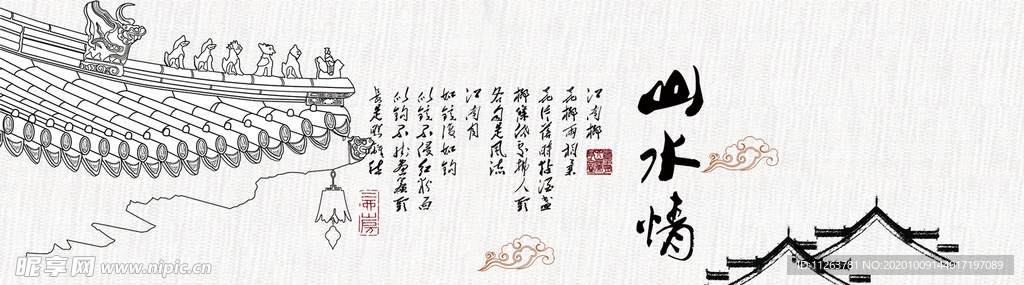 山水情
江南柳
花柳两相柔
花片落时黏酒盏
柳條低處拂人头
各自是风流
江南月
如镜复如钩
似镜不侵红粉面
似钩不挂画帘头
长是照離愁
昵享网 www.nipic.cn